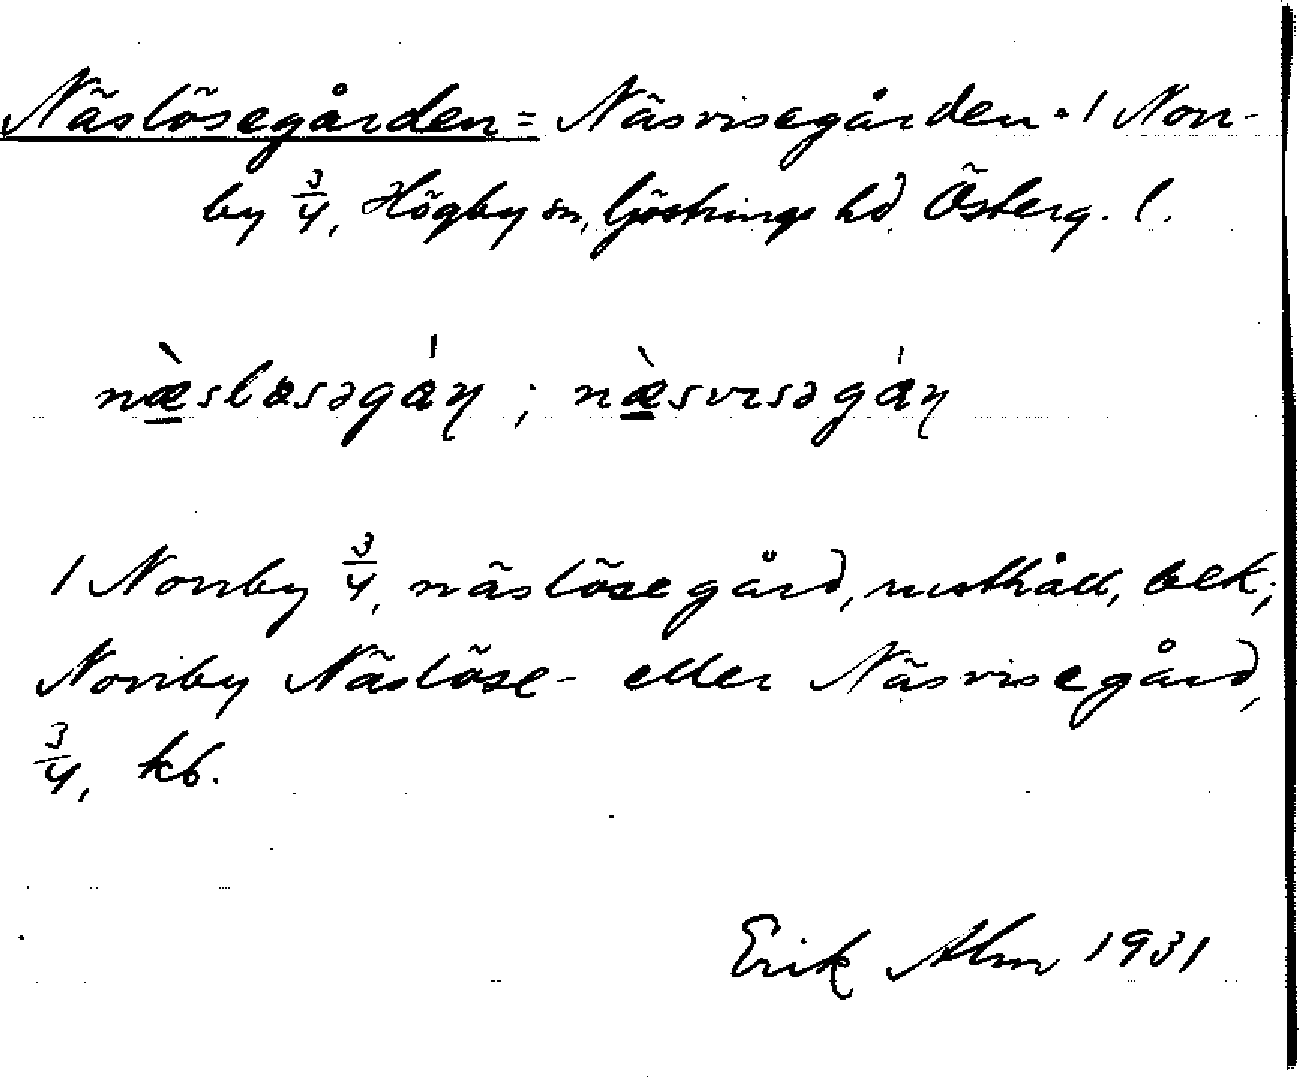 Näslösegården = Näsvisegården. 1 Norr-
by 3/4, Högby sn, Göstrings hd Österg. l.
næ̀slœsəgáṇ ; næ̀svɪsəgáṇ
1 Norrby 3/4, näslösegård, rusthåll, bek;
Norrby Näslöse- eller Näsvisegård,
3/4, kb.
Erik Alm 1931